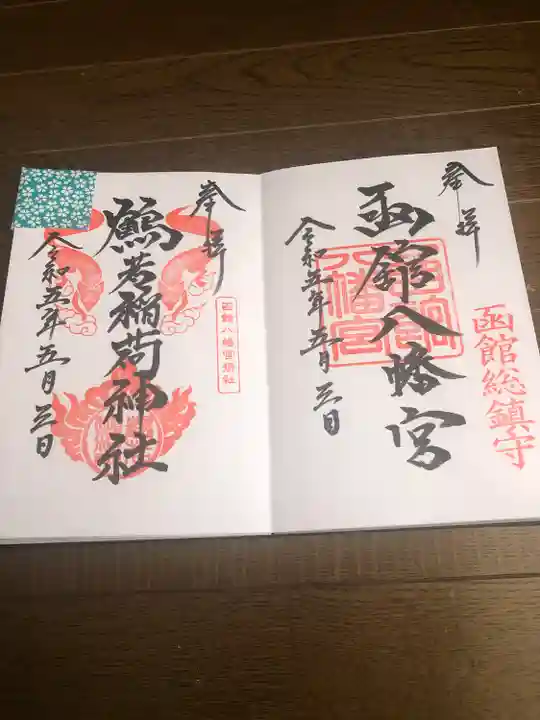 奉拝
函館八幡宮
令和五年五月三日
函館総鎮守
八幡宮
奉拝
鶴若稲荷神社
令和五年五月三日
函館八幡宮摂社